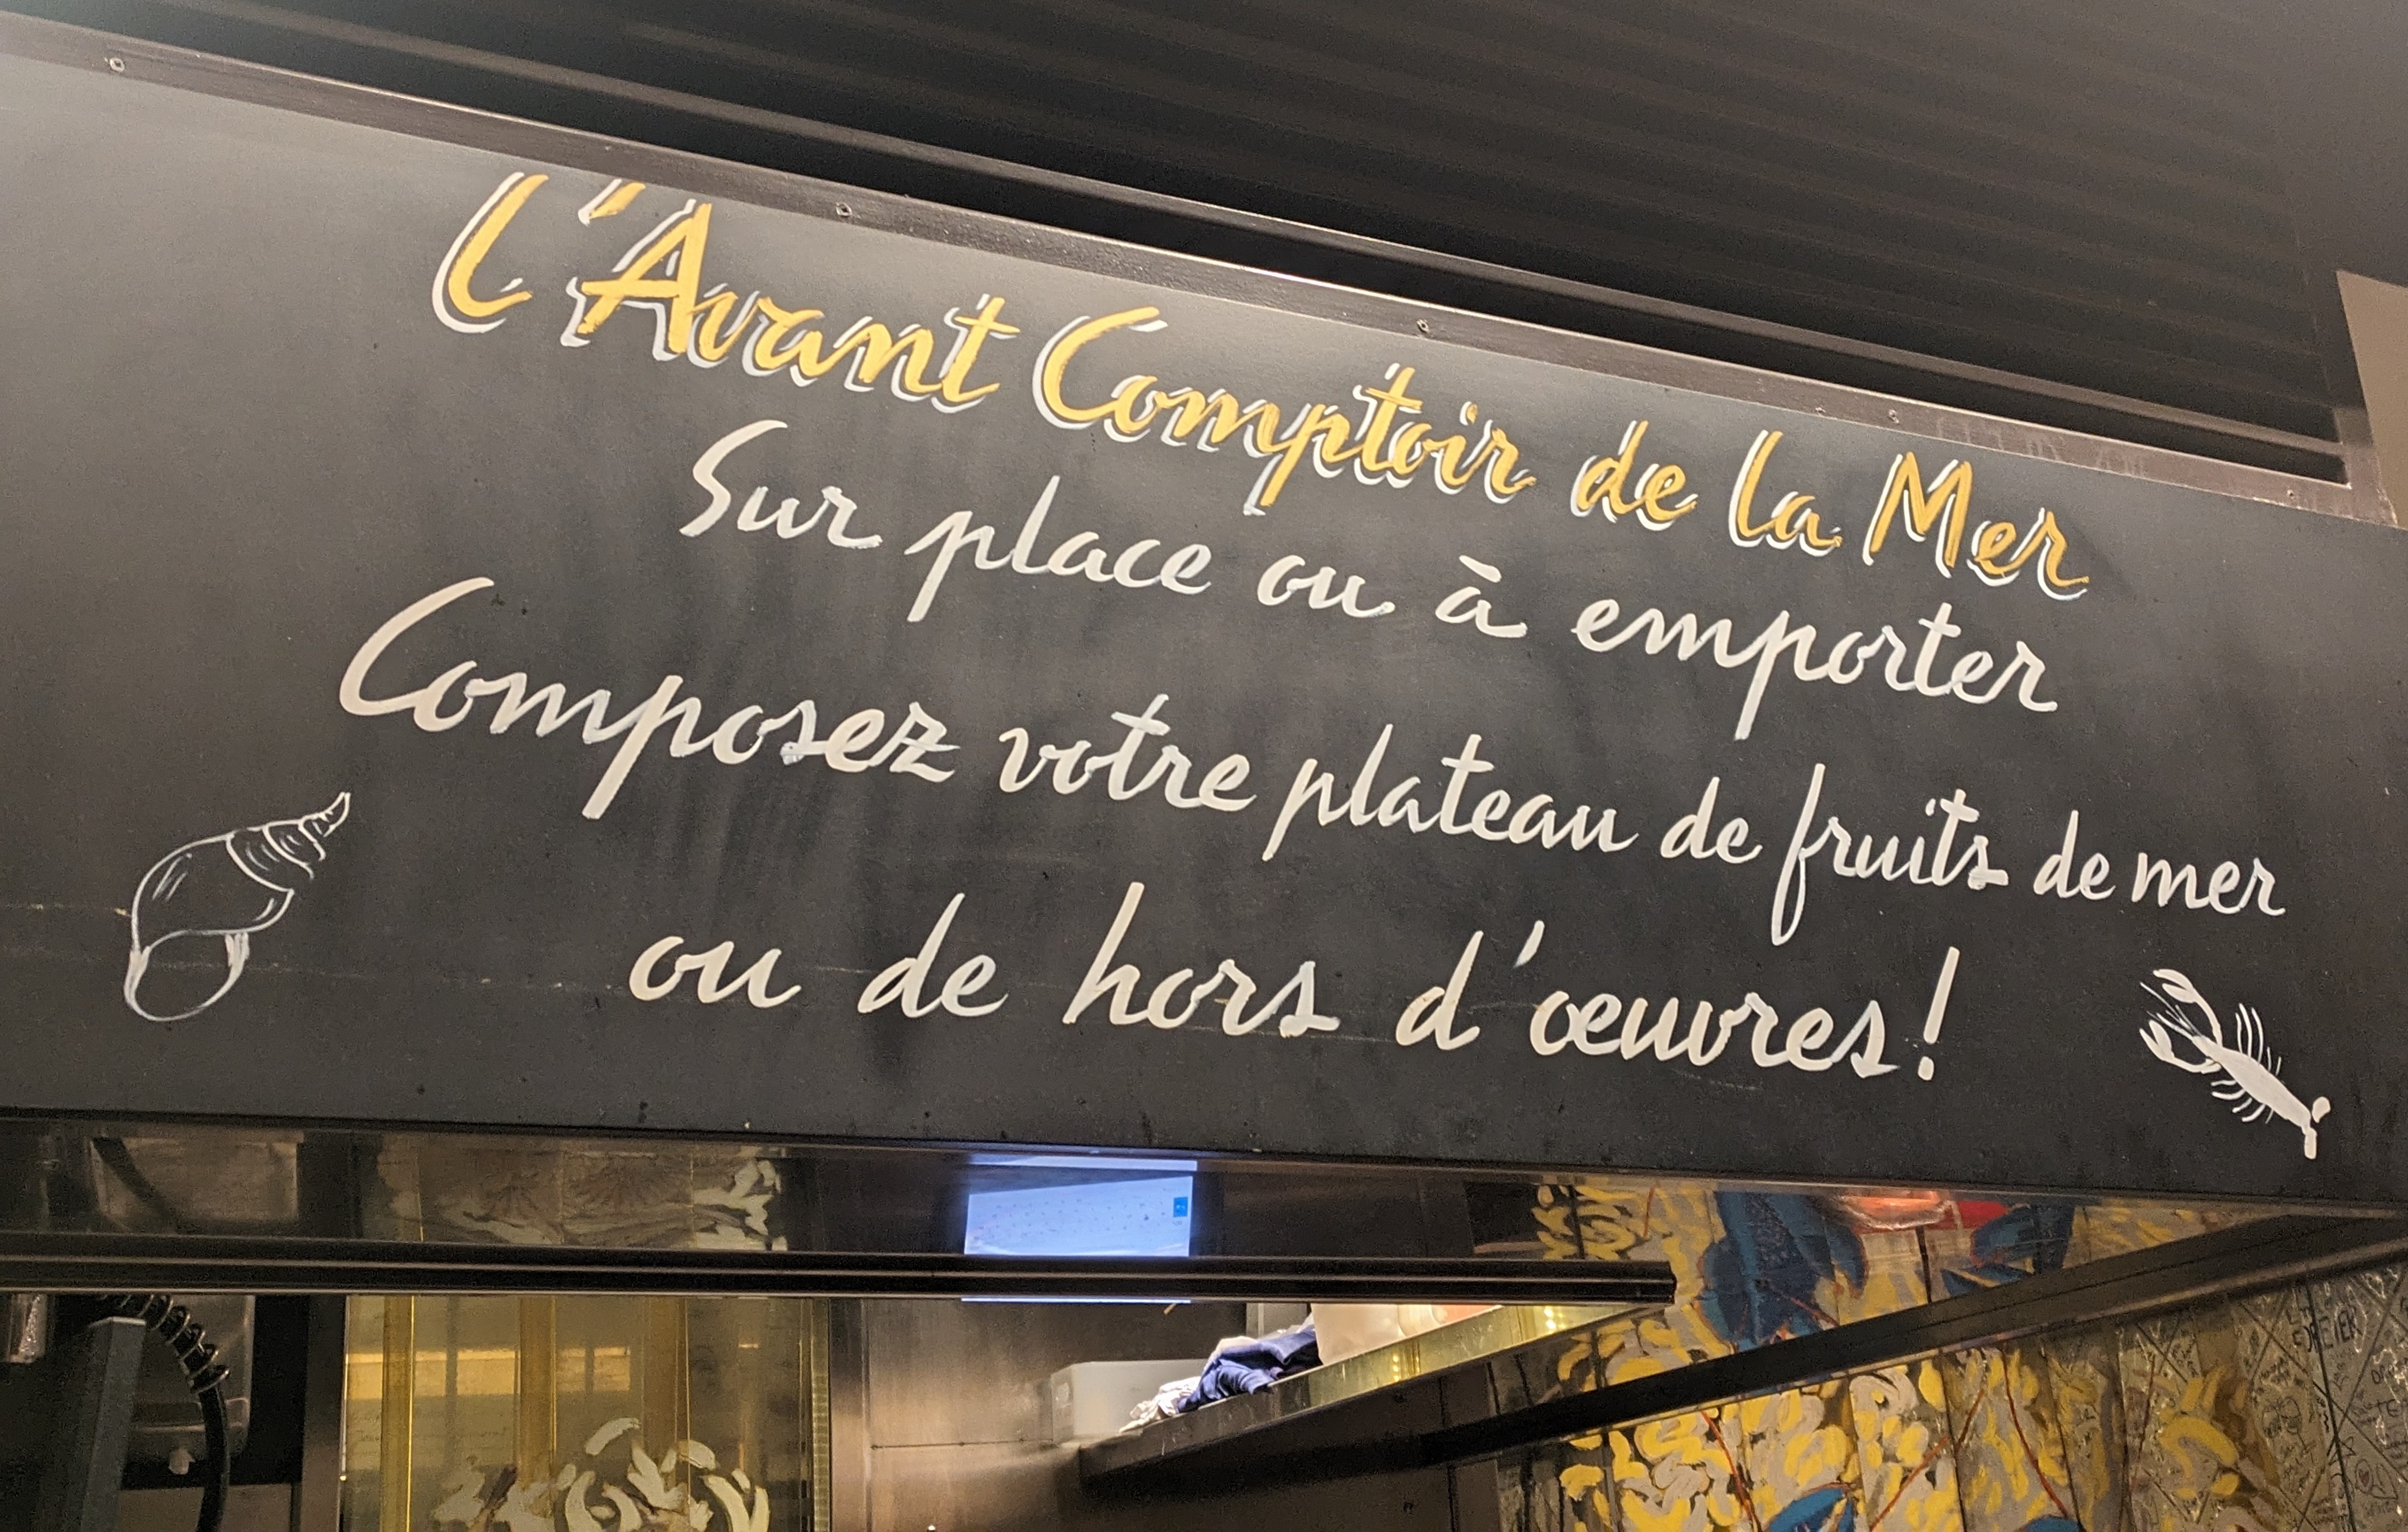 L'Avant Comptoir de la Mer
Sur place ou à emporter
Composez votre plateau de fruits de mer
ou de hors d'œuvres!